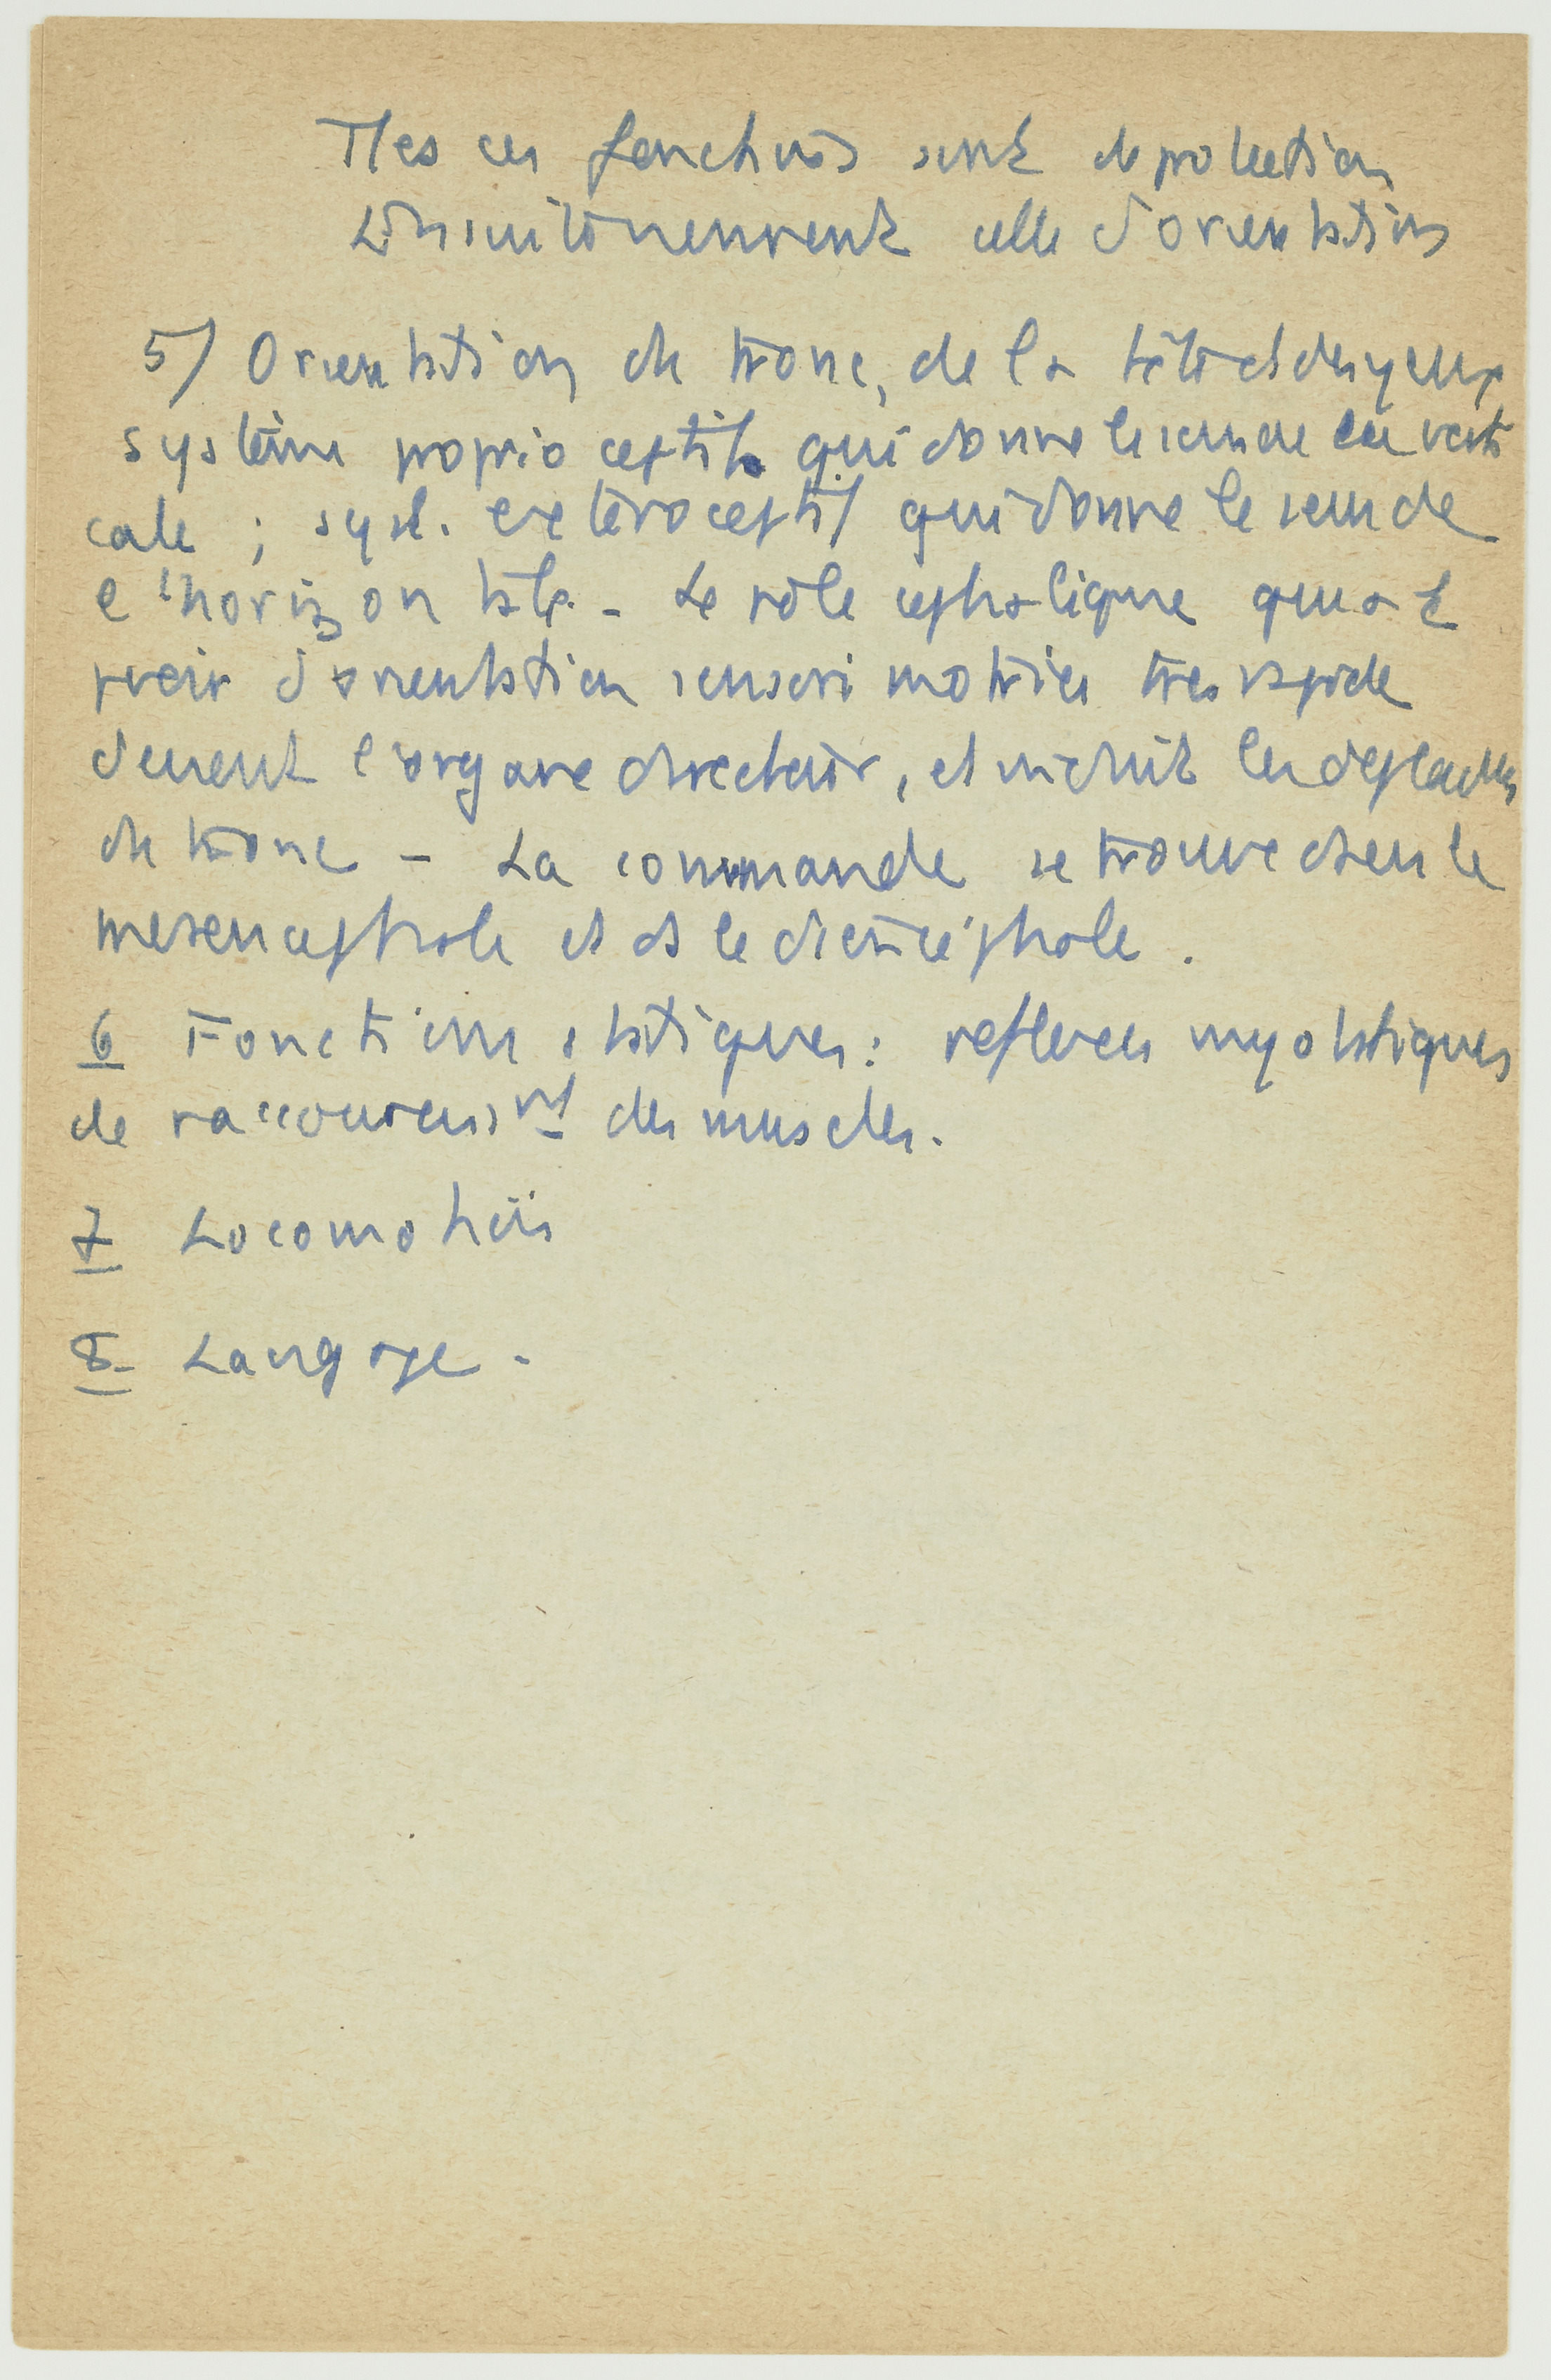 Ttes ces fonctions sont de protection
simultanément celle d'orientation
5/ Orientation du tronc, de la tête et des yeux
système proprioceptif qui donne le sens de la verti
cale ; syst. exteroceptif qui donne le sens de
l'horizontale - Le pôle cephalique quant
d'orientation sensori motrice tres rapide
devient l'organe directeur, et induit les
du tronc - La commande se trouve dans le
mesencephale et ds le diencéphale.
6 Fonctions statiques : reflexes myotatiques
de raccourcismt des muscles.
7 Locomotion
8- Langage -